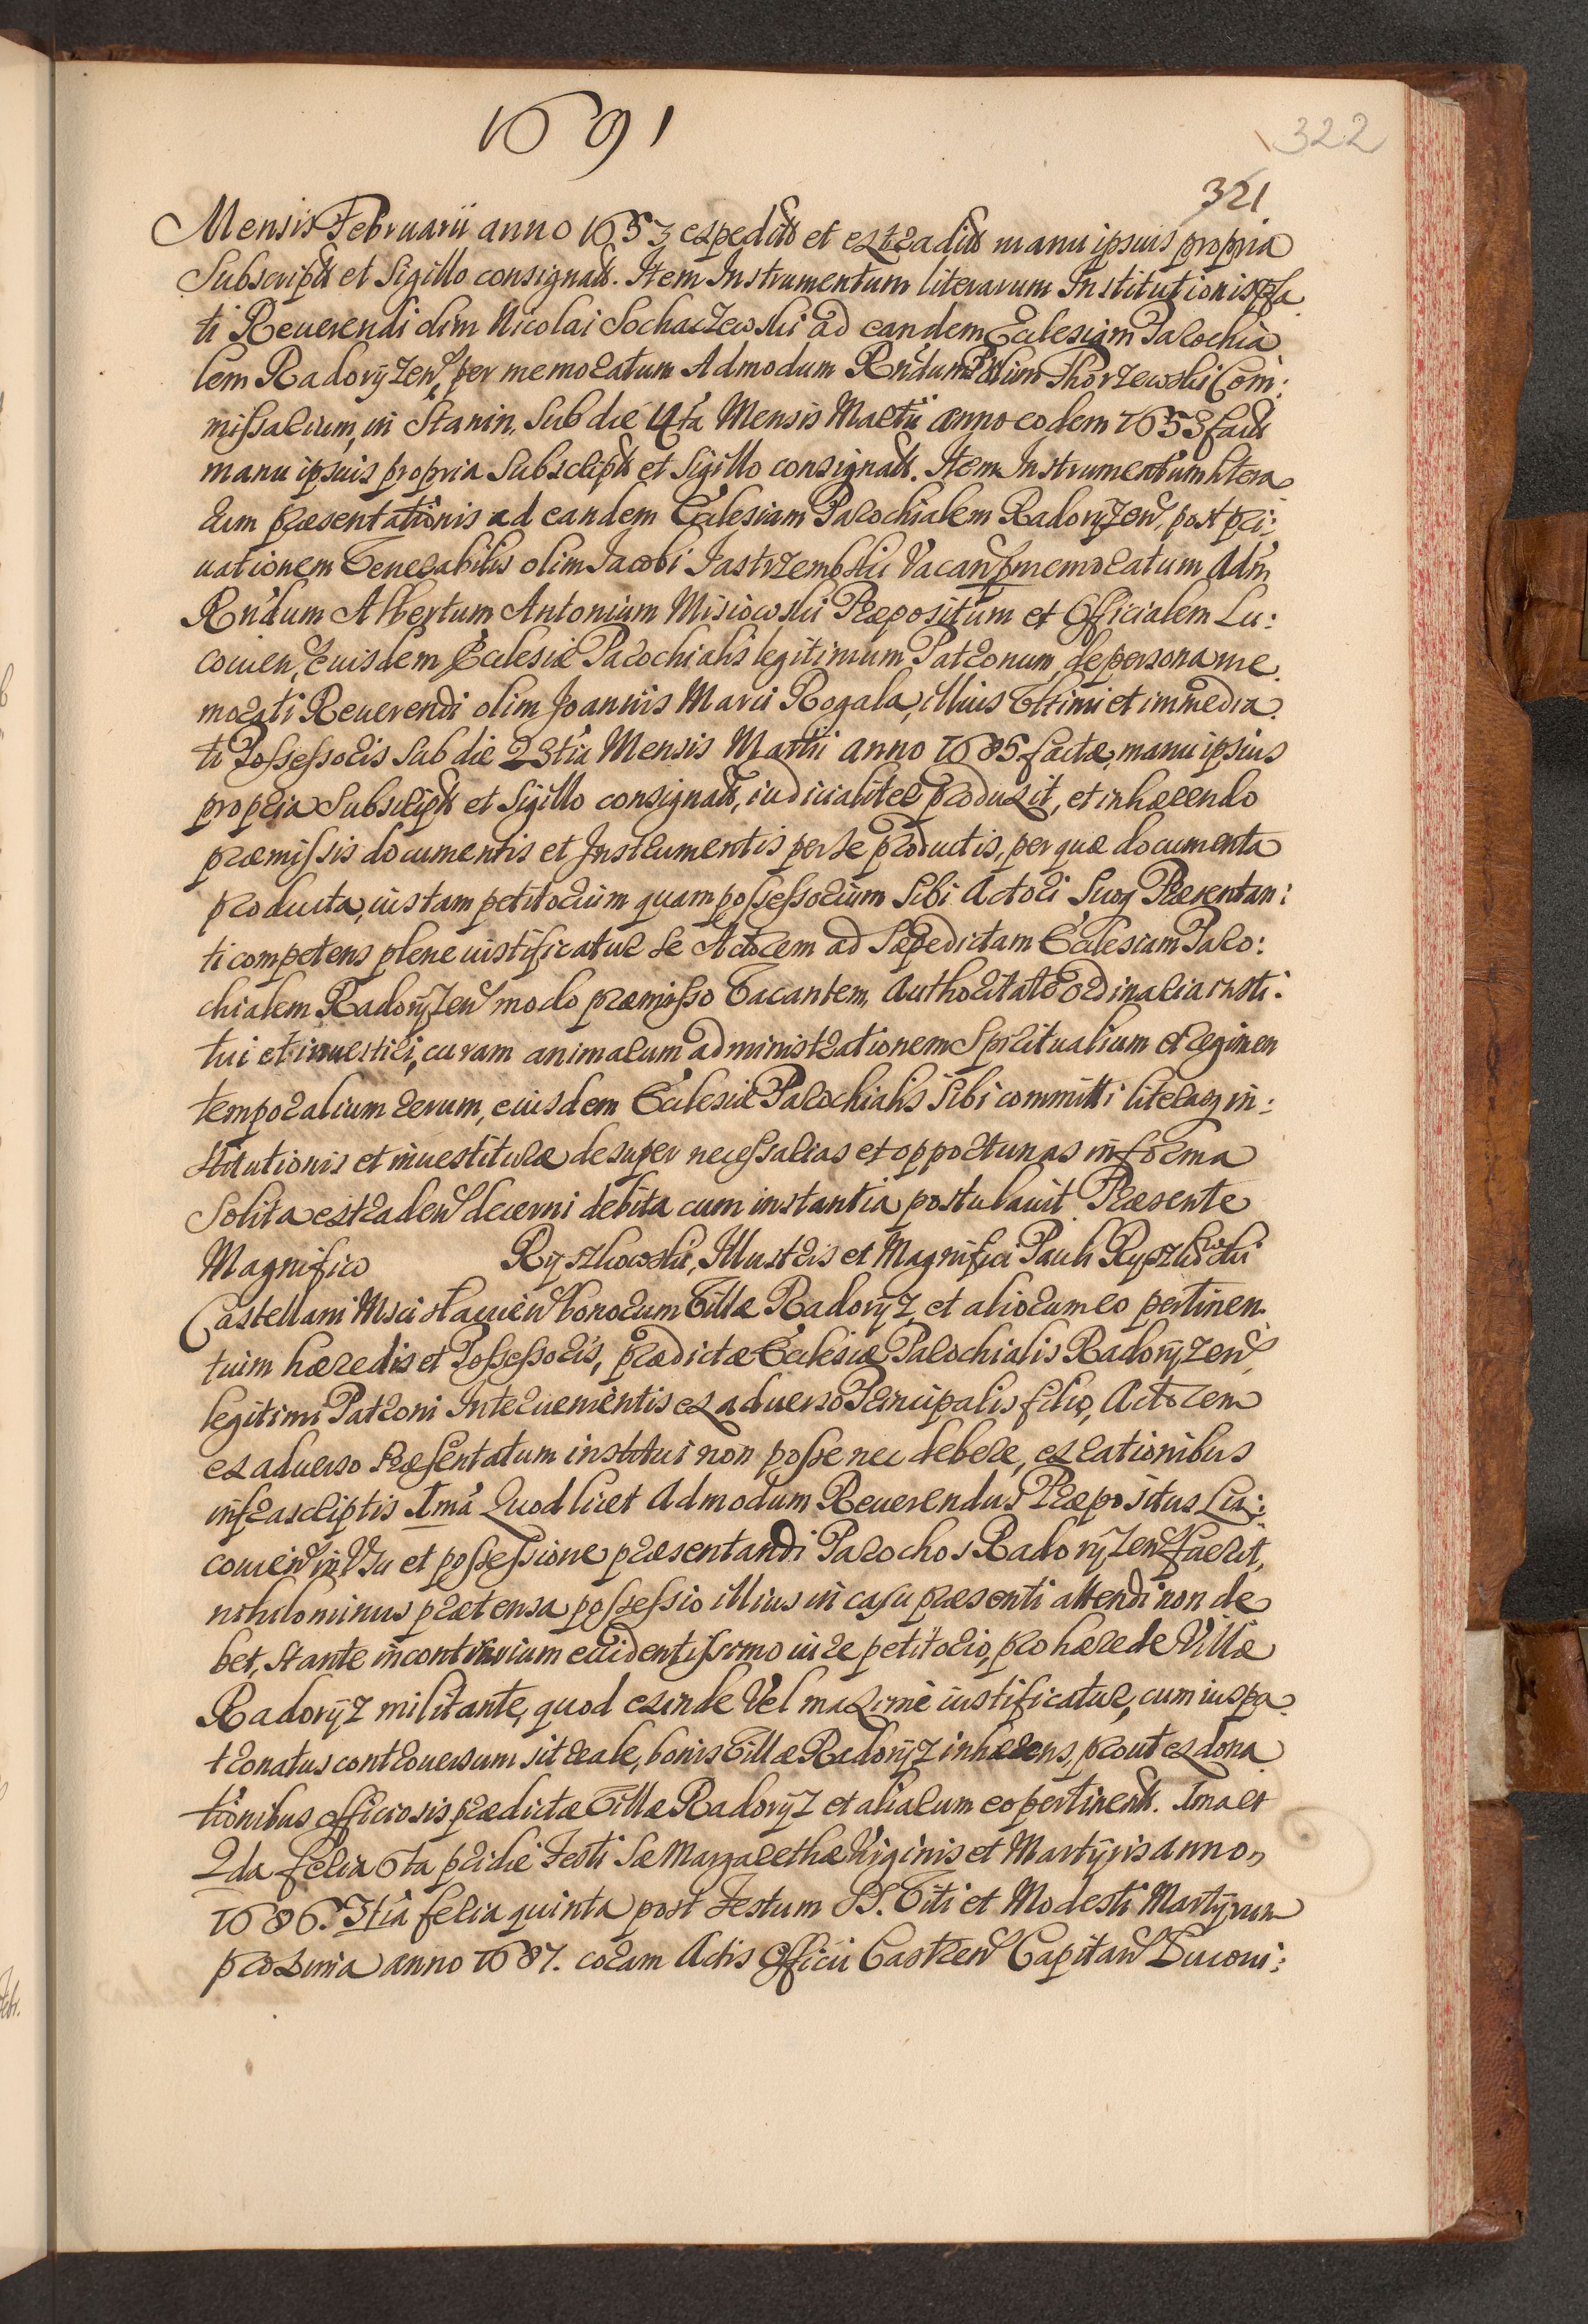 1691
322
321.
Mensis Februarii anno 1653 expedit et extradit manu ipsius propria
Subscript et Sigillo consignat. Item Instrumentum literarum Institutionis præfa
ti Reuerendi olim Nicolai Sochaczewski ad eandem Ecclesiam Parochia
lem Radoryzen, per memoratum Admodum Rndum olim Thorzewski Com:
missarium, in Stanin, Sub die 4ta Mensis Martii anno eodem 1653 fact
manu ipsius propria Subscript et Sigillo consignat. Item Instrumentum litera
rum præsentationis ad eandem Ecclesiam Parochialem Radoryzen, post pri:
uationem Venerabilis olim Jacobi Jastrzembski Vacan per memoratum Adm
Rndum Albertum Antonium Misiowski Præpositum et Officialem Lu:
couien, eiusdem Ecclesiæ Parochialis legitimum Patronum, de persona me
morati Reuerendi olim Joannis Marci Rogala, illius Vltimi et immedia
ti Possessoris sub die 23tia Mensis Martii anno 1685 factæ, manu ipsius
propria Subscript et Sigillo consignat, iudicialiter produxit, et inhærendo
præmissis documentis et Instrumentis per se productis, per quæ documenta
producta, ius tam petitorium quam possessorium Sibi Actori Suoq Præsentan:
ti competens plene iustificatur se Actorem ad Sæpedictam Ecclesiam Paro:
chialem Radoryzen modo præmisso Vacantem, Authoritate Ordinaria insti:
tui et inuestiri, curam animarum administrationem Spiritualium et regimen
temporalium rerum, eiusdem Ecclesiæ Parochialis Sibi committi literasq in:
stitutionis et inuestituræ desuper necessarias et opportunas in forma
Solita extraden decerni debita cum instantia postulauit. Præsente
Magnifico Ryszkowski, Illustris et Magnifici Pauli Ryszkowski
Castellani Mscislauien bonorum Villæ Radoryz et aliorum eo pertinen
tium hæredis et Possessoris, prædictæ Ecclesiæ Parochialis Radoryzen
legitimi Patroni Interuenientis ex aduerso Principalis filio, Actorem
ex aduerso Præsentatum institui non posse nec debere, ex rationibus
infrascriptis Ima Quod licet Admodum Reuerendus Præpositus Lu:
couien in Vsu et possessione præsentandi Parochos Radoryzen fuerit,
nihilominus prætensa possessio illius in casu præsenti attendi non de
bet, stante in contrarium euidentissimo iure petitorio, pro hærede Villæ
Radoryz militante, quod exinde Vel maxime iustificatur, cum ius pa
tronatus controuersum sit reale, bonis Villæ Radoryz inhærens, prout ex dona
tionibus officiosis prædictæ Villæ Radoryz et aliarum eo pertinent. Ima et
2da feria 6ta pridie Festi Sæ Margarethæ Virginis et Martyris anno
1686. 3tia feria quinta post Festum SS. Viti et Modesti Martyrum
proxima anno 1687. coram Actis Officii Castren Capitan Lucoui: